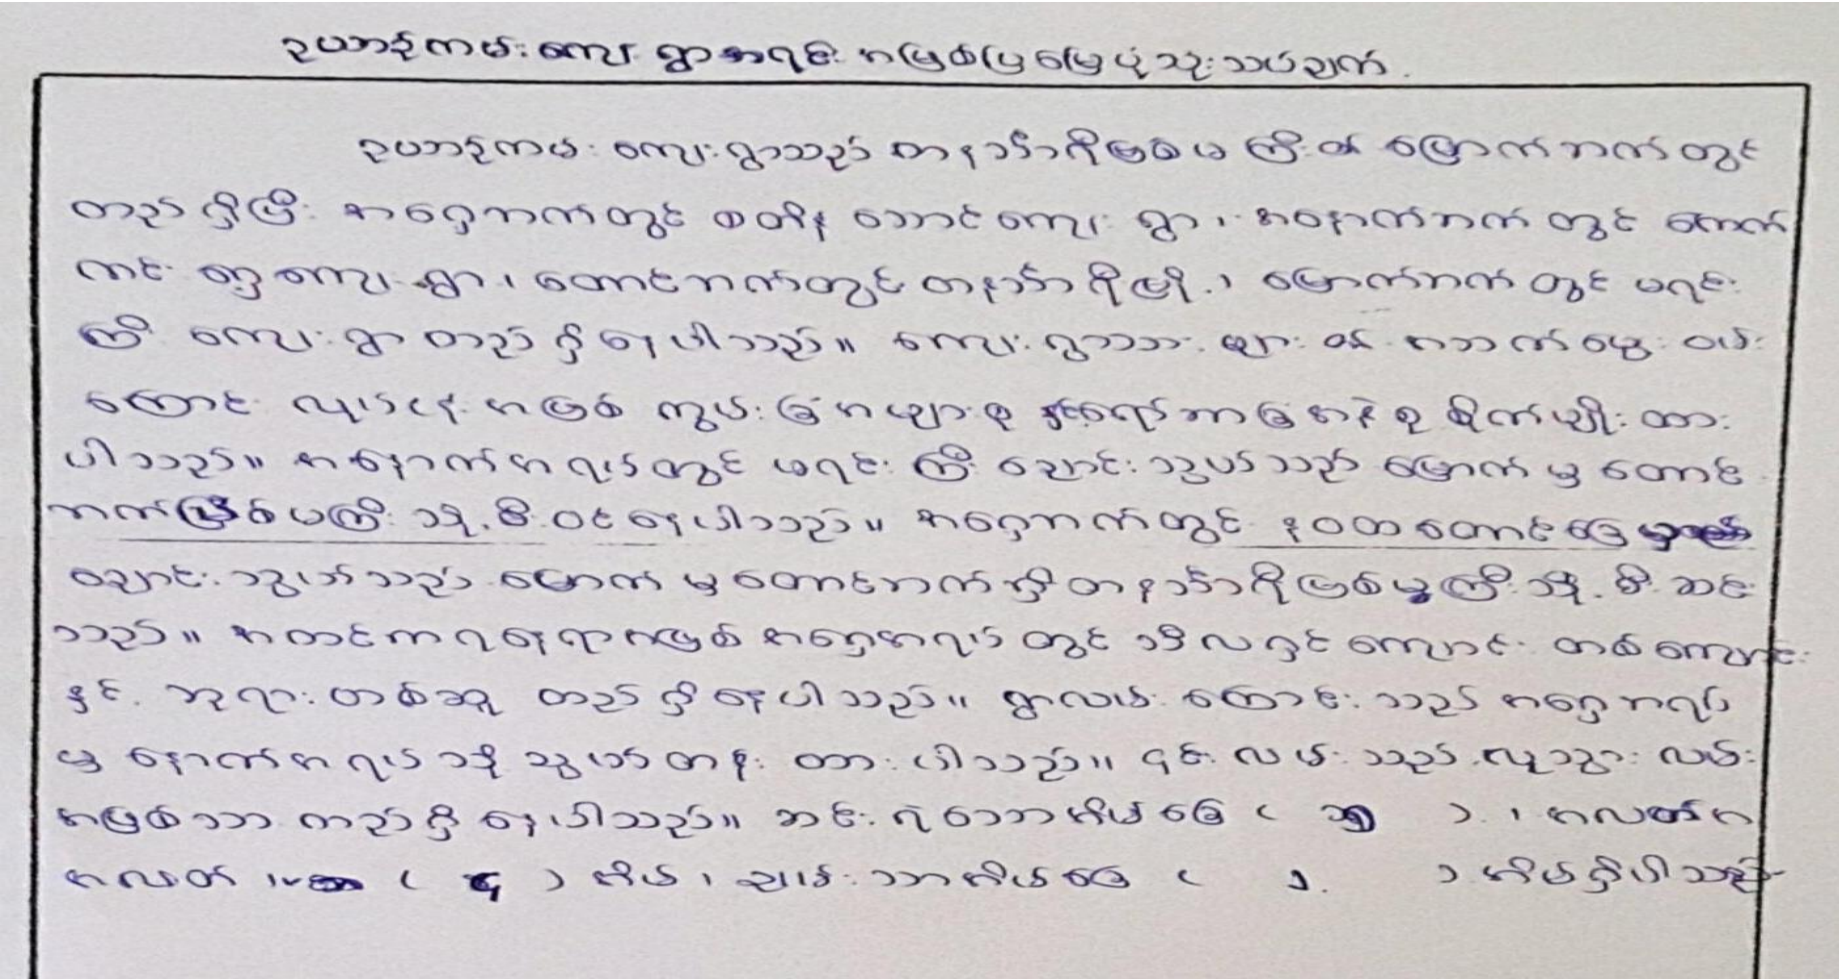 ဥယာဉ်ကမ်းကျေးရွာအရင်းအမြစ်ပြမြေပုံသုံးသပ်ချက်.
ဥယာဉ်ကမ်း ကျေးရွာသည် တနင်္သာရီမြစ်မကြီး၏ မြောက်ဘက်တွင်
တည်ရှိပြီး အရှေ့ဘက်တွင် တောင်ကျေးရွာ၊ အနောက်ဘက်တွင် ကောက်
ကင်းရှေ့ကျေးရွာ၊ တောင်ဘက်တွင် တနင်္သာရီမြို့၊ မြောက်ဘက်တွင် မရင်း
ကြီး ကျေးရွာ တည်ရှိနေပါသည်။ ကျေးရွာသားများ၏ အသက်မွေးဝမ်း
ကြောင်း လုပ်ငန်းအဖြစ် ကွမ်းခြံအများစု နှင့်ရော်ဘာခြံအနဲစု စိုက်ပျိုးထား
ပါသည်။ အနောက်အရပ်တွင် မရင်းကြီးချောင်းသွယ်သည် မြောက်မှ တောင်
ဘက်မြစ်မကြီးသို့ စီးဝင်နေပါသည်။ အရှေ့ဘက်တွင် နဝထတောင်ခြေ
ချောင်းသွယ်သည် မြောက်မှတောင်ဘက်ရှိတနင်္သာရီမြစ်မကြီးသို့ စီးဆင်း
သည်။ အထင်ကရနေရာအဖြစ် အရှေ့အရပ်တွင် သီလရှင်ကျောင်း တစ်ကျောင်း
နှင့် ဘုရားတစ်ဆူ တည်ရှိနေပါသည်။ ရွာလမ်းကြောင်းသည် အရှေ့အရပ်
မှ နောက်အရပ်သို့ သွယ်တန်းထားပါသည်။ ၎င်းလမ်းသည် လူသွားလမ်း
အဖြစ်သာ တည်ရှိနေပါသည်။ ဆင်းရဲသောအိမ်ခြေ ( ) ၊ အလတ်အ
အလတ် ( ၄ ) အိမ်၊ ချမ်းသာအိမ်ခြေ ( ၁. ) အိမ်ရှိပါသည်